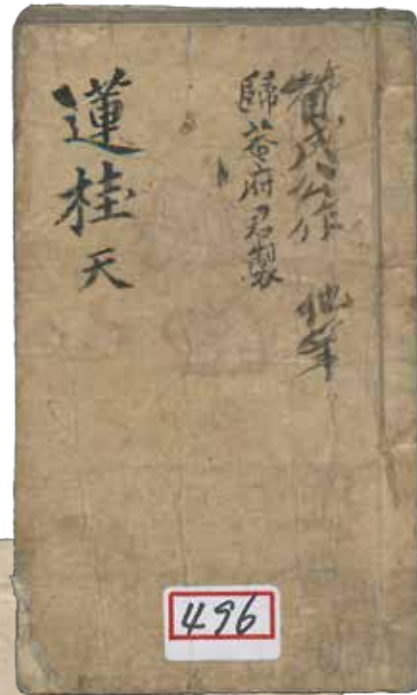 贊成公作 他筆
歸菴府君製
蓮桂 天
496